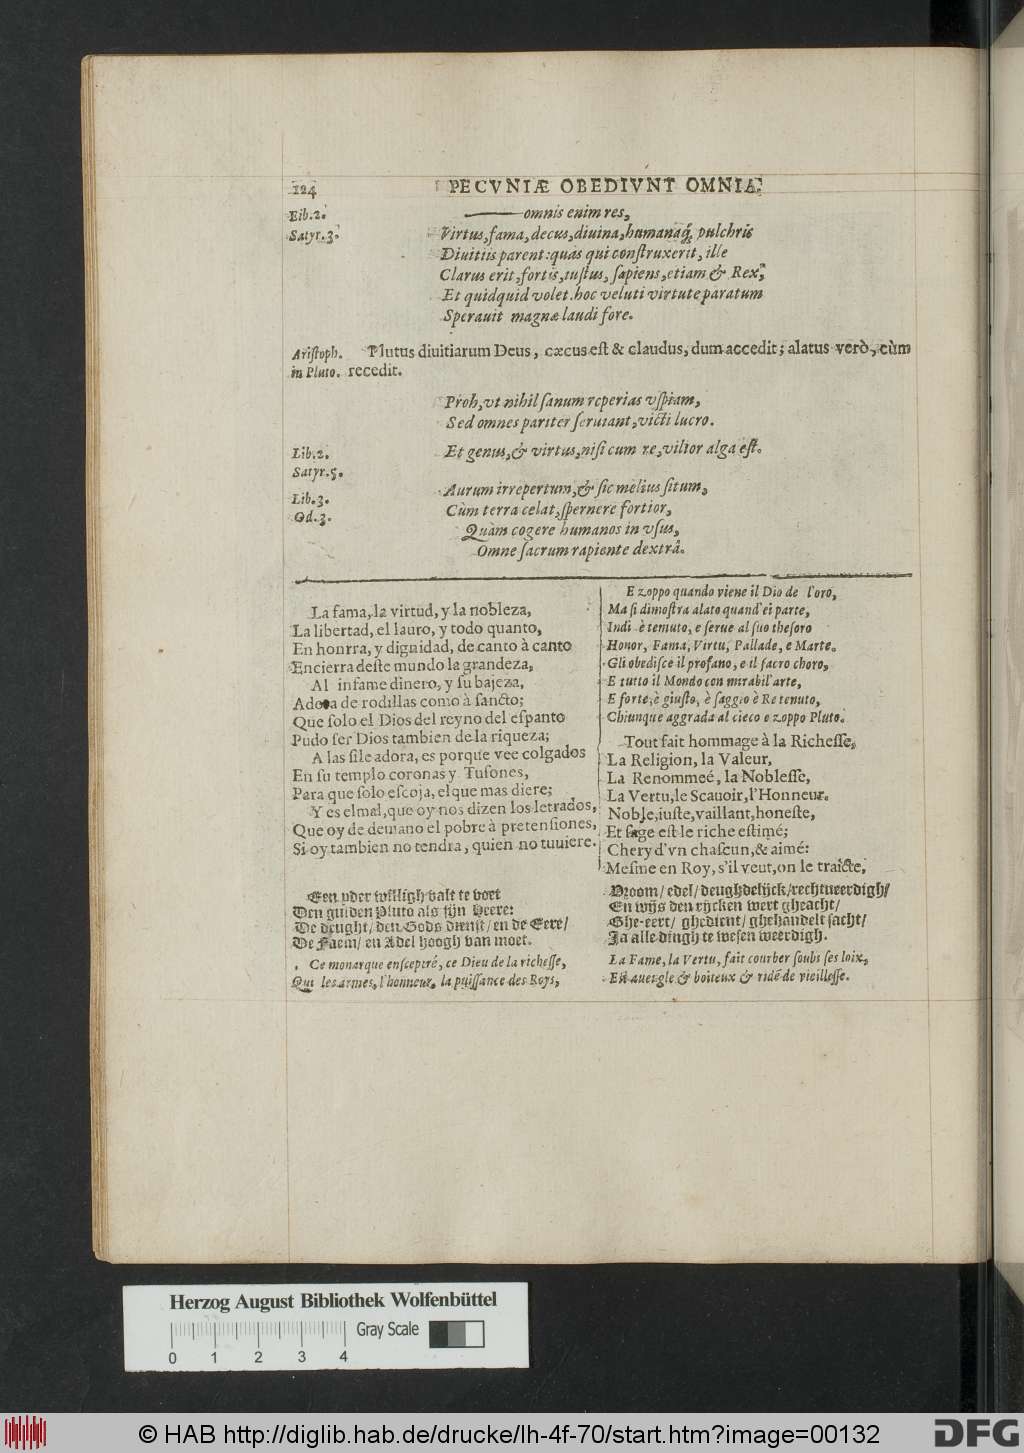 124
PECVNIÆ OBEDIVNT OMNIA.
Lib.2.
Satyr.3.
omnis enim res,
Virtus, fama, decus, diuina, humanaq́; pulchris
Diuitiis parent: quas qui conſtruxerit, ille
Clarus erit, fortis, iuſtus, ſapiens, etiam & Rex,
Et quidquid volet. hoc veluti virtute paratum
Sperauit magnæ laudi fore.
Ariſtoph.
in Pluto.
Plutus diuitiarum Deus, cæcus eſt & claudus, dum accedit; alatus verò, cùm
recedit.
Proh, vt nihil ſanum reperias vſpiam,
Sed omnes pariter ſeruiant, victi lucro.
Lib.2.
Satyr.5.
Et genus, & virtus, niſi cum re, vilior alga eſt.
Lib.3.
Od.3.
Aurum irrepertum, & ſic melius ſitum,
Cùm terra celat, ſpernere fortior,
Quàm cogere humanos in vſus,
Omne ſacrum rapiente dextrâ.
La fama, la virtud, y la nobleza,
La libertad, el lauro, y todo quanto,
En honrra, y dignidad, de canto à canto
Encierra deſte mundo la grandeza,
Al infame dinero, y ſu bajeza,
Adora de rodillas como à ſancto;
Que ſolo el Dios del reyno del eſpanto
Pudo ſer Dios tambien de la riqueza;
A las ſile adora, es porque vee colgados
En ſu templo coronas y Tuſones,
Para que ſolo eſcoja, el que mas diere;
Y es el mal, que oy nos dizen los letrados,
Que oy de demano el pobre à pretenſiones,
Si oy tambien no tendra, quien no tuuiere.
Een yder willigh valt te voet
Den gulden Pluto als ſijn Heere:
De deught/ den Gods dienſt/ en de Eere/
De Faem/ en Adel hoogh van moet.
Ce monarque enſceptré, ce Dieu de la richeſſe,
Qui les armes, l'honneur, la puiſſance des Roys,
E zoppo quando viene il Dio de l'oro,
Ma ſi dimoſtra alato quand' ei parte,
Indi è temuto, e ſerue al ſuo theſoro
Honor, Fama, Virtu, Pallade, e Marte.
Gli obediſce il profano, e il ſacro choro,
E tutto il Mondo con mirabil' arte,
E forte, è giuſto, è ſaggio è Re tenuto,
Chiunque aggrada al cieco e zoppo Pluto.
Tout fait hommage à la Richeſſe,
La Religion, la Valeur,
La Renommeé, la Nobleſſe,
La Vertu, le Scauoir, l'Honneur.
Noble, iuſte, vaillant, honeſte,
Et ſage eſt le riche eſtimé;
Chery d'vn chaſcun, & aimé:
Meſme en Roy, s'il veut, on le traicte,
Vroom/ edel/ deughdelijck/ rechtueerdigh/
En wijs den rijcken wert gheacht/
Ghe-eert/ ghedient/ ghehandelt ſacht/
Ja alle dingh te weſen weerdigh.
La Fame, la Vertu, fait courber ſoubs ſes loix,
Eſt aueugle & boiteux & ridé de vieilleſſe.
Herzog August Bibliothek Wolfenbüttel
Gray Scale
0 1 2 3 4
© HAB http://diglib.hab.de/drucke/lh-4f-70/start.htm?image=00132
DFG